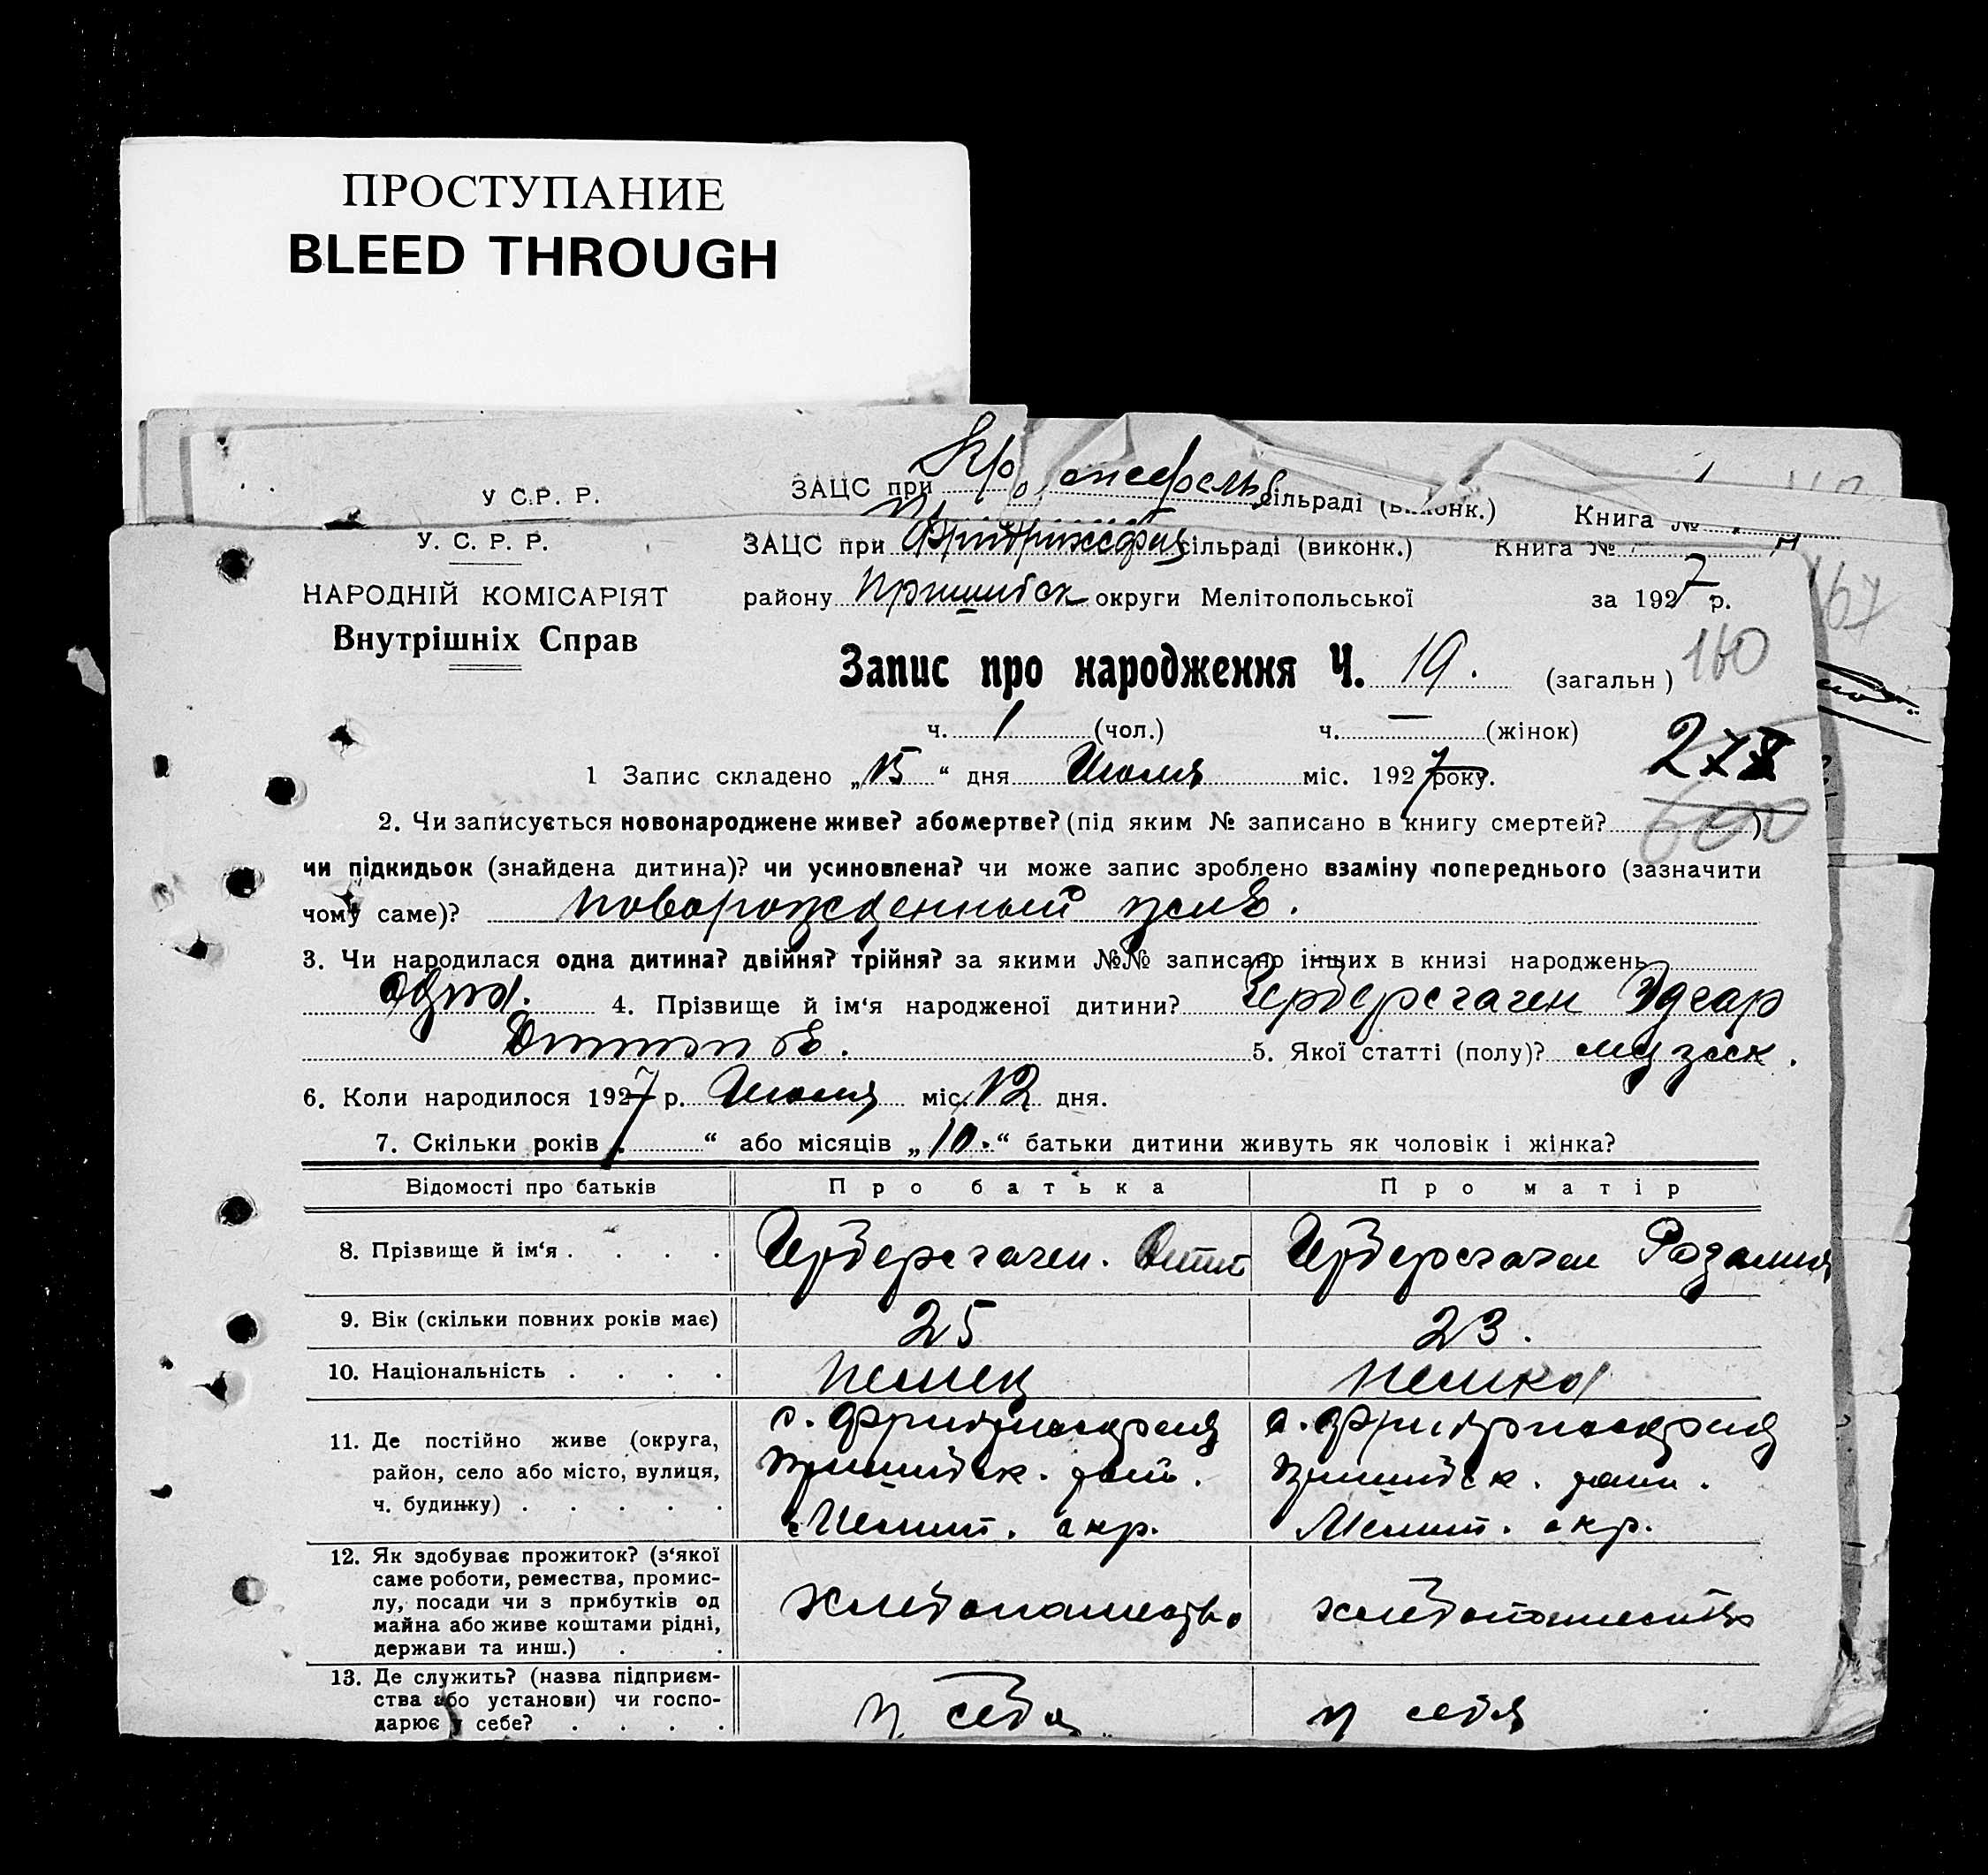 ПРОСТУПАНИЕ
BLEED THROUGH
У С.Р. Р. ЗАЦС при сільраді (виконк.) Книга №
У. С. Р. Р. ЗАЦС при сільраді (виконк.) Книга №
НАРОДНІЙ КОМІСАРІЯТ району Пришибск округи Мелітопольської за 1927 р.
67
Внутрішніх Справ
Запис про народження Ч. 19. (загальн) 160
ч. 1 (чол.) ч. — (жінок)
1 Запис складено „15" дня Июля міс. 1927 року. 278
2. Чи записується новонароджене живе? або мертве? (під яким № записано в книгу смертей? ) 600
чи підкидьок (знайдена дитина)? чи усиновлена? чи може запис зроблено взаміну попереднього (зазначити
чому саме)? новорожденный
3. Чи народилася одна дитина? двійня? трійня? за якими №№ записано інших в книзі народжень
одна. 4. Прізвище й ім'я народженої дитини? Гердерсгаген Эдгар
5. Якої статті (полу)? мужск.
6. Коли народилося 1927 р. Июля міс. 12 дня.
7. Скільки років " або місяців „10." батьки дитини живуть як чоловік і жінка?
Відомості про батьків Про батька Про матір
8. Прізвище й ім'я . . . . Гердерсгаген. Гердерсгаген Розалия
9. Вік (скільки повних років має) 25 23.
10. Національність . . . . немец немка
11. Де постійно живе (округа, район, село або місто, вулиця, ч. будинку) . . . . .
Пришибск. рай. Пришибск. рай.
Мелит. окр. Мелит. окр.
12. Як здобуває прожиток? (з'якої саме роботи, ремества, промис-
лу, посади чи з прибутків од хлебопашество хлебопашество
майна або живе коштами рідні,
держави та инш.) . .
13. Де служить? (назва підприєм-
ства або установи) чи госпо- у себя у себя
дарює у себе? . . . .